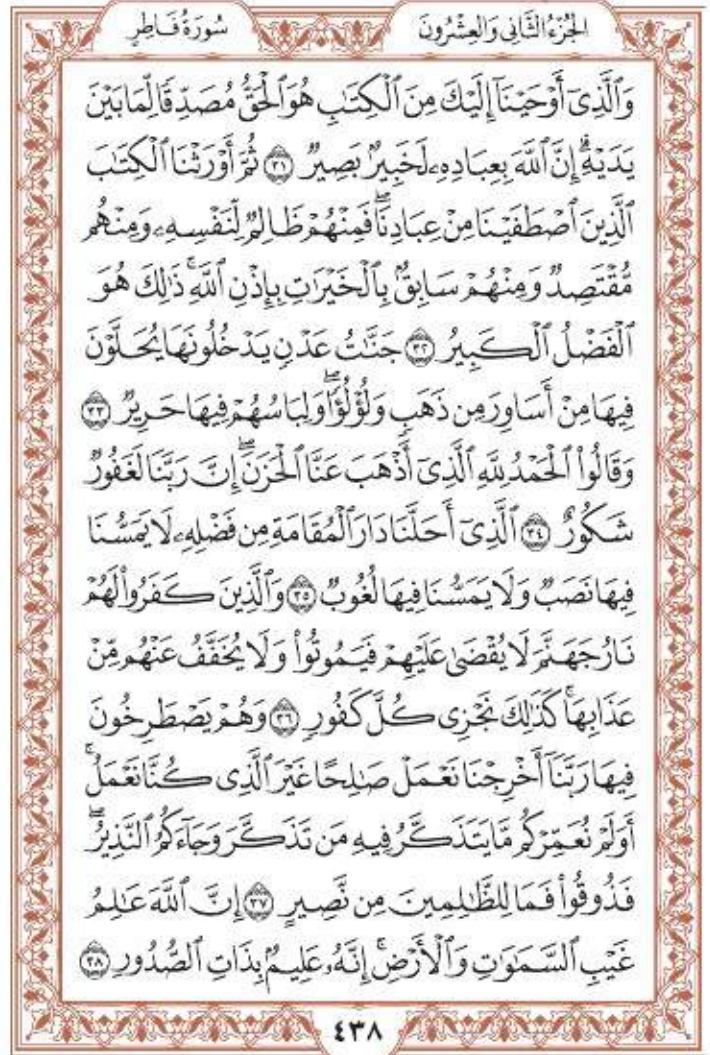 سُورَةُ فَاطِرٍ الجُزْءُ الثَّانِي وَالعِشْرُونَ
وَٱلَّذِىٓ أَوْحَيْنَآ إِلَيْكَ مِنَ ٱلْكِتَـٰبِ هُوَ ٱلْحَقُّ مُصَدِّقًا لِّمَا بَيْنَ
يَدَيْهِۗ إِنَّ ٱللَّهَ بِعِبَادِهِۦ لَخَبِيرٌۢ بَصِيرٌ ٣١ ثُمَّ أَوْرَثْنَا ٱلْكِتَـٰبَ
ٱلَّذِينَ ٱصْطَفَيْنَا مِنْ عِبَادِنَاۖ فَمِنْهُمْ ظَالِمٌ لِّنَفْسِهِۦ وَمِنْهُم
مُّقْتَصِدٌ وَمِنْهُمْ سَابِقٌۢ بِٱلْخَيْرَٰتِ بِإِذْنِ ٱللَّهِۚ ذَٰلِكَ هُوَ
ٱلْفَضْلُ ٱلْكَبِيرُ ٣٢ جَنَّـٰتُ عَدْنٍ يَدْخُلُونَهَا يُحَلَّوْنَ
فِيهَا مِنْ أَسَاوِرَ مِن ذَهَبٍ وَلُؤْلُؤًاۖ وَلِبَاسُهُمْ فِيهَا حَرِيرٌ ٣٣
وَقَالُوا۟ ٱلْحَمْدُ لِلَّهِ ٱلَّذِىٓ أَذْهَبَ عَنَّا ٱلْحَزَنَۖ إِنَّ رَبَّنَا لَغَفُورٌ
شَكُورٌ ٣٤ ٱلَّذِىٓ أَحَلَّنَا دَارَ ٱلْمُقَامَةِ مِن فَضْلِهِۦ لَا يَمَسُّنَا
فِيهَا نَصَبٌ وَلَا يَمَسُّنَا فِيهَا لُغُوبٌ ٣٥ وَٱلَّذِينَ كَفَرُوا۟ لَهُمْ
نَارُ جَهَنَّمَ لَا يُقْضَىٰ عَلَيْهِمْ فَيَمُوتُوا۟ وَلَا يُخَفَّفُ عَنْهُم مِّنْ
عَذَابِهَاۚ كَذَٰلِكَ نَجْزِى كُلَّ كَفُورٍ ٣٦ وَهُمْ يَصْطَرِخُونَ
فِيهَا رَبَّنَآ أَخْرِجْنَا نَعْمَلْ صَـٰلِحًا غَيْرَ ٱلَّذِى كُنَّا نَعْمَلُۚ
أَوَلَمْ نُعَمِّرْكُم مَّا يَتَذَكَّرُ فِيهِ مَن تَذَكَّرَ وَجَآءَكُمُ ٱلنَّذِيرُۖ
فَذُوقُوا۟ فَمَا لِلظَّـٰلِمِينَ مِن نَّصِيرٍ ٣٧ إِنَّ ٱللَّهَ عَـٰلِمُ
غَيْبِ ٱلسَّمَـٰوَٰتِ وَٱلْأَرْضِۚ إِنَّهُۥ عَلِيمٌۢ بِذَاتِ ٱلصُّدُورِ ٣٨
٤٣٨